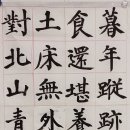 暮年蹤跡
食還堪養
土床無外
對北山青